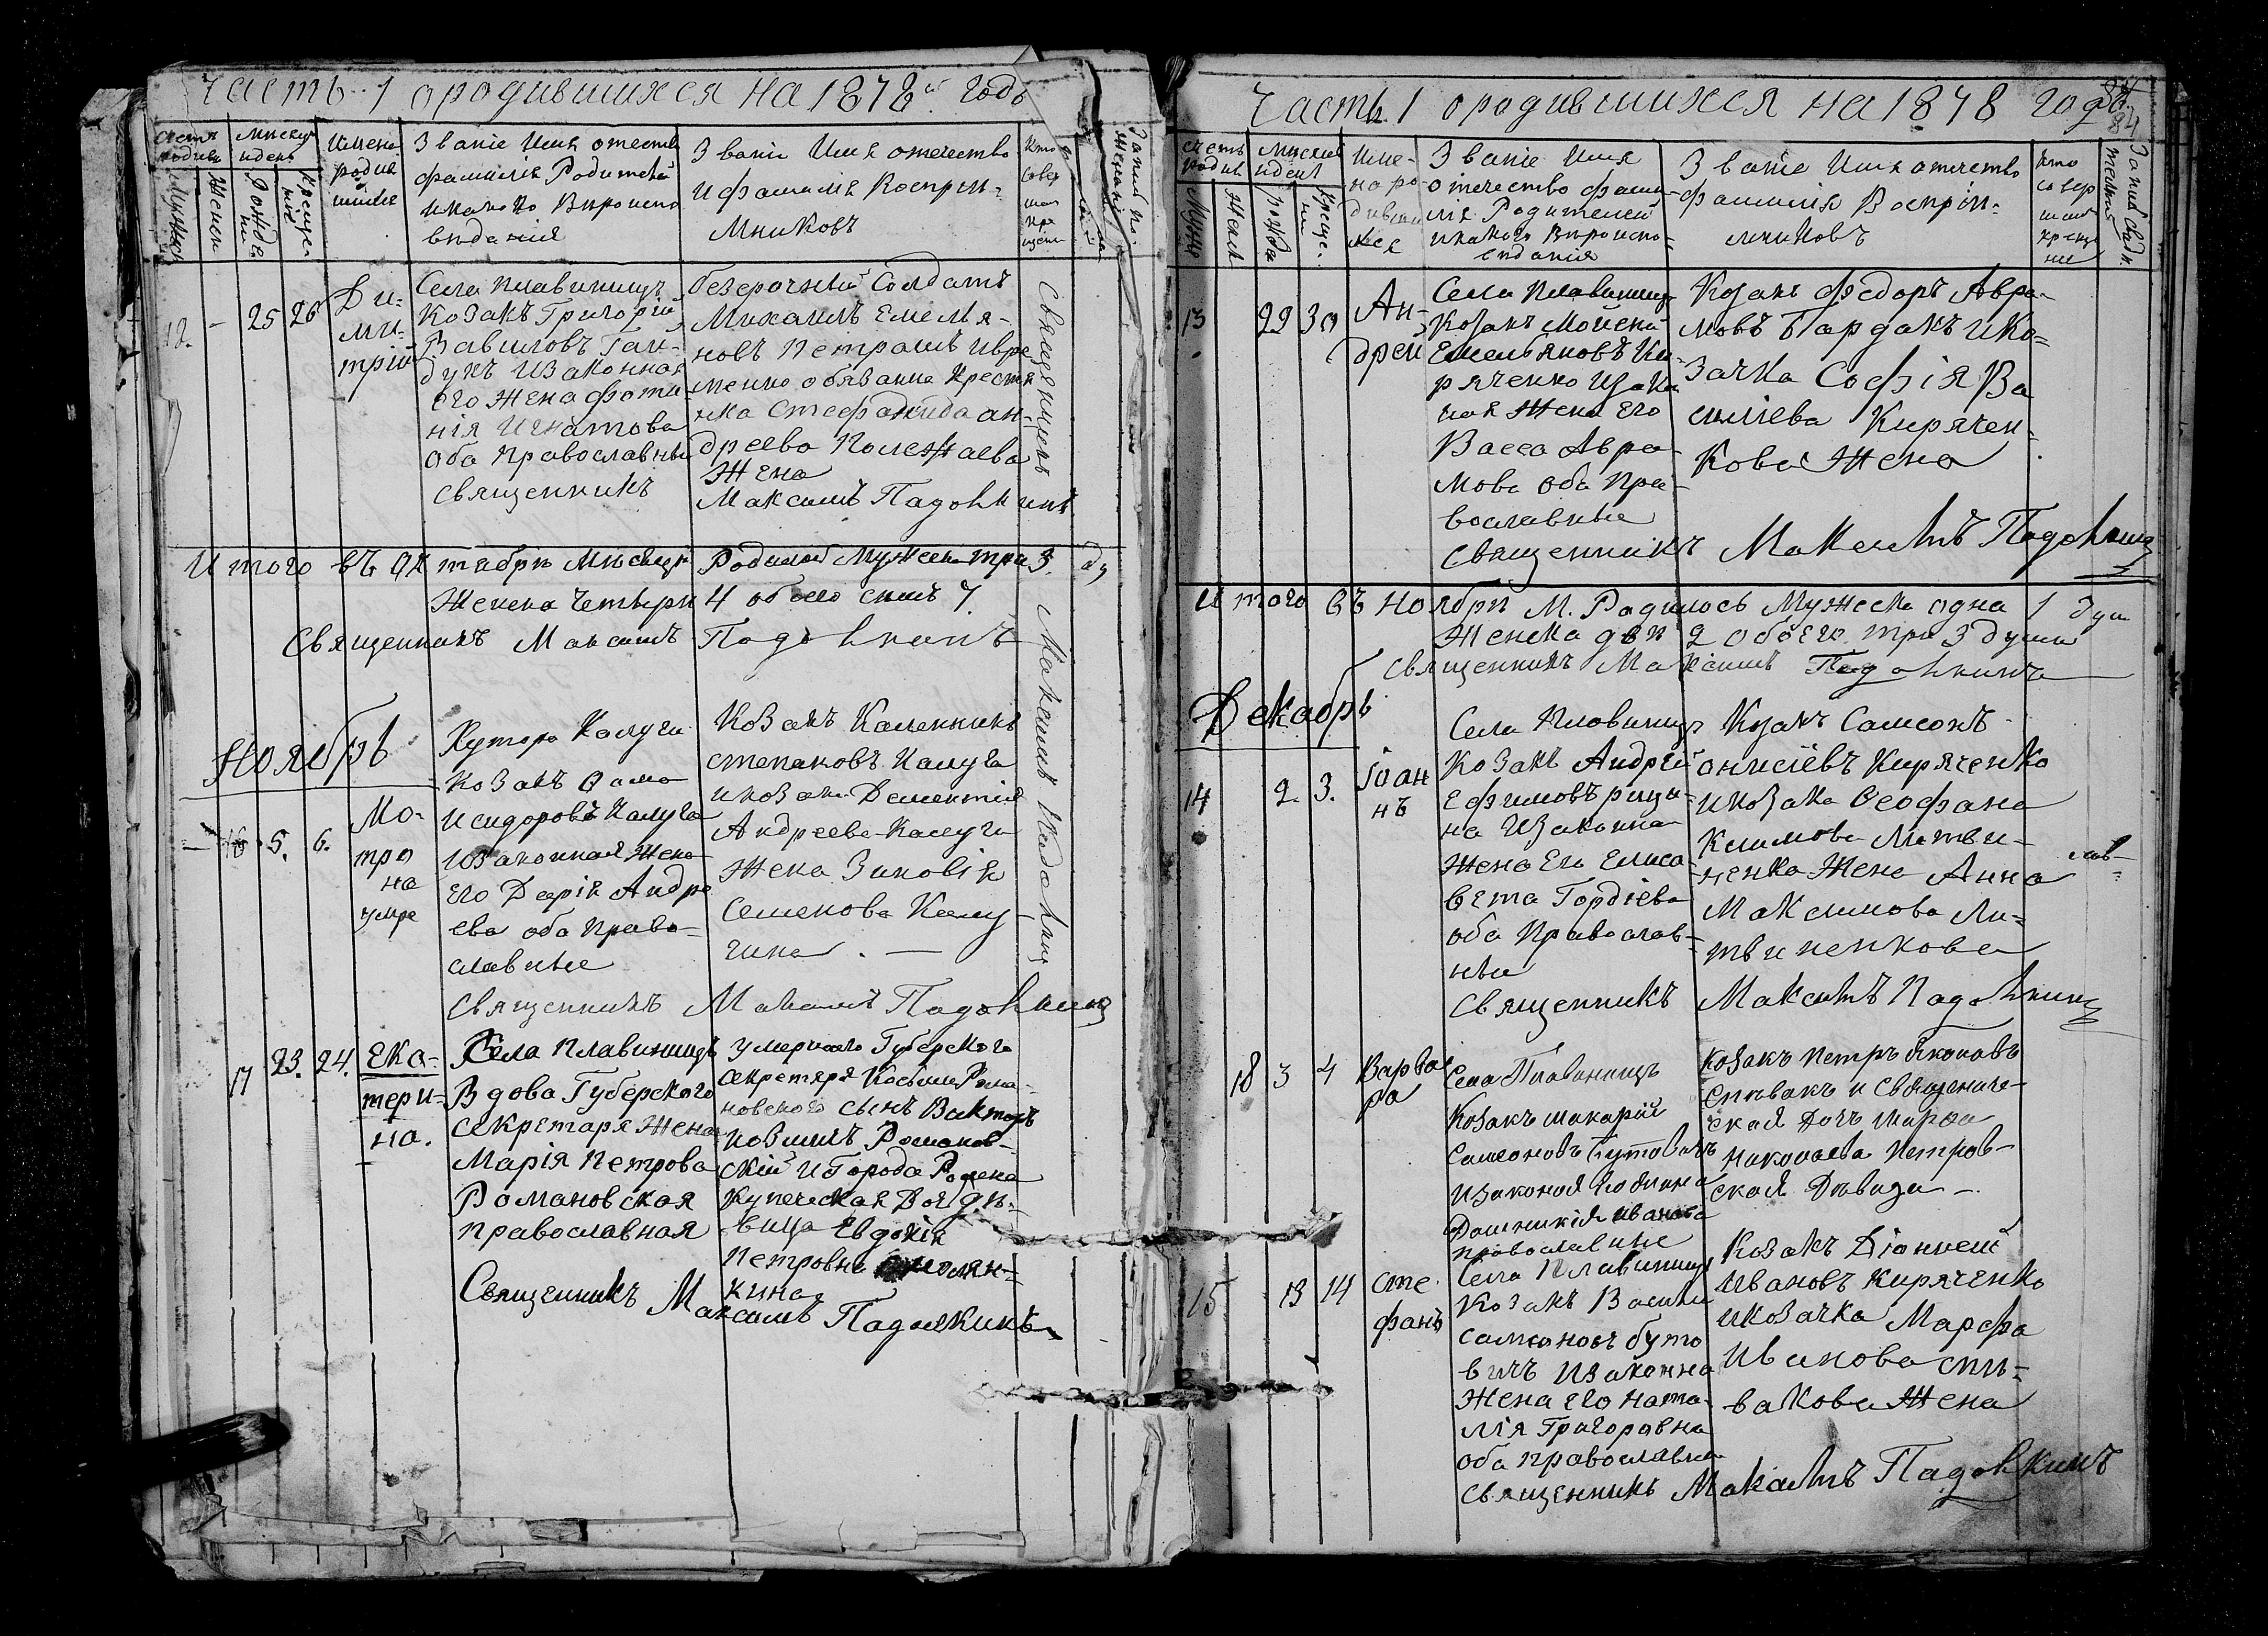 Часть 1 ородившихся на 1878й годъ
Счетъ родив.
Мужеск
Женск
Мнсяцъ иденъ
Рожде нiе
Креще нiе
Имена родив шихся
Званiе Имя отеств
фамилiя Родителей
икакого Вироиспо
виданiя
Званiе Имя отечество
ифамилiя Воспрiи-
мниковъ
Кто совер шал кре щенiе
12. - 25 26
Ди-
ми-
трiй
Села Плавиницъ
Козакъ Григорiй
Вавиловъ Гай-
дукъ Изаконная
его Жена фоти
нiя Игнатова
Оба Православные
Священникъ
безсрочный Солдатъ
Михаилъ Емелья-
новъ Петрашъ ивре
менно обязанна Крестя
нка Стефанида ан-
дреева Полежаева
Жена
Максимъ Падолкинъ
Священникъ Максимъ Падолкинъ
Итого въ Октябри Мнсяцн Родилось Мужеска три 3. ду
Женска Четыри 4 обоего симъ 7
Священникъ Максимъ Падолкинъ
Ноябрь
- 16 5. 6.
Мо-
тро
на
умре
Хутора Калуги
Козакъ
Исидоровъ Калуга
Изаконная Жена
его Дарiя Андре
ева оба Право-
славные
Козакъ Каленникъ
степановъ Калуга
икозака Дементiя
Андреева Калуги
Жена Зиновiя
Семенова Калу-
гина. —
Священникъ Максимъ Падолкинъ
17 23. 24.
Ека-
тери-
на.
Села Плавиницъ
Вдова Губерского
Секретаря Жена
Марiя Петрова
Романовская
православная
умершаго Губерского
секретаря Косьми Рома-
новского сынъ Викторъ
Козмичъ Романов-
скiй иГорода Ромена
Купеческая Доя дн-
вица Евдокiя
Петровна
кина
Священникъ Максимъ Падолкинъ
Часть 1 ородившихся на 1878 годъ
84
Счетъ родив.
Мужс
Женск
Мнсяцъ идень
Рожде
Креще.
Име-
на ро-
дивши
хся
Званiе Имя
отечество фами-
лiя Родителей
икакого Вироиспо-
видания
Званiе Имя отечество
фамилiя Воспрiи-
мниковъ
Кто совер шал креще нiе
13 29 30
Ан-
дрей
Села Плавиницъ
Козакъ Мойсей
Емельяновъ Ки-
ряченко Изако
ная Жена Его
Васса Авра-
мова Оба Пра-
вославные
Священникъ
Козакъ Федоръ Авра-
мовъ Бардакъ иКо-
зачка Софiя Ва
силiева Кирячен-
кова Жена
Максимъ Падолкинъ
Итого въ Ноябри М. Родилось Мужеска одна 1 душ
Женска дви 2 обоего три 3 души
Священникъ Максимъ Падолкинъ
Декабрь
14 2. 3.
Iоан
нъ
Села Плавиницъ
Козакъ Андрей
Ефимовъ
на Изаконна
Жена Его Елиса-
вета Гордiева
оба Православ-
ные
Священникъ
Козакъ Самсонъ
онисiевъ Киряченко
икозака Феофана
Климова Литви-
ненка Жена Анна
Максимова Ли-
твиненкова
Максимъ Падолкинъ
18 3 4
Варва
ра
Села Плавиницъ
Козакъ макарiй
Самсоновъ Бутовичъ
изаконая его жена
Домникiя иванова
православные
Козакъ Петръ Яковавъ
Спивакъ и Священиче-
ская дочъ марфа
николаева Петров-
ская Дивица —
15 13 14
Сте
фанъ
Села Плавиницъ
Козакъ Василий
Самсоновъ буто
вичъ Изаконна
Жена его Ната-
лiя Григоровна
оба православные
Священникъ
Козакъ Дiонисiй
Ивановъ Киряченко
икозачка Марфа
Иванова спи-
вакова Жена
Максимъ Падолкинъ